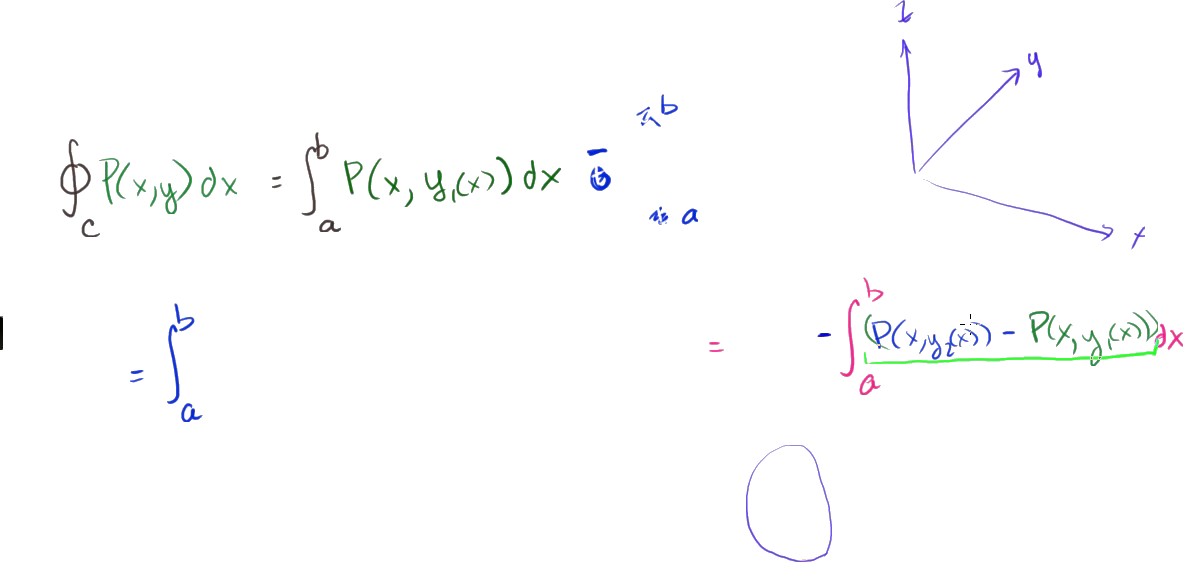 z
y
x
∮_C P(x,y) dx = ∫_a^b P(x, y₁(x)) dx −
b
a
= ∫_a^b
= - ∫_a^b (P(x,y₂(x)) - P(x,y₁(x))) dx